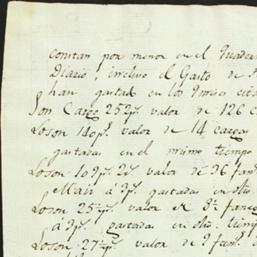 constan por menor en el Quader
Diario, incluso el Gasto de
han gastad en los Precios
Son Cargo 252 ps. valor de 126 c
Loson 140 ps. valor de 14 cargas
gastadas en el mismo tiempo
Loson 109 ps. 2 rs valor de 36 fan
Maiz á 3 ps. gastadas en dho.
Loson 25 ps. valor de 8 faneg
á 3 ps. gastadas en dho. tiemp
Loson 27 ps. valor de 9 fan. d